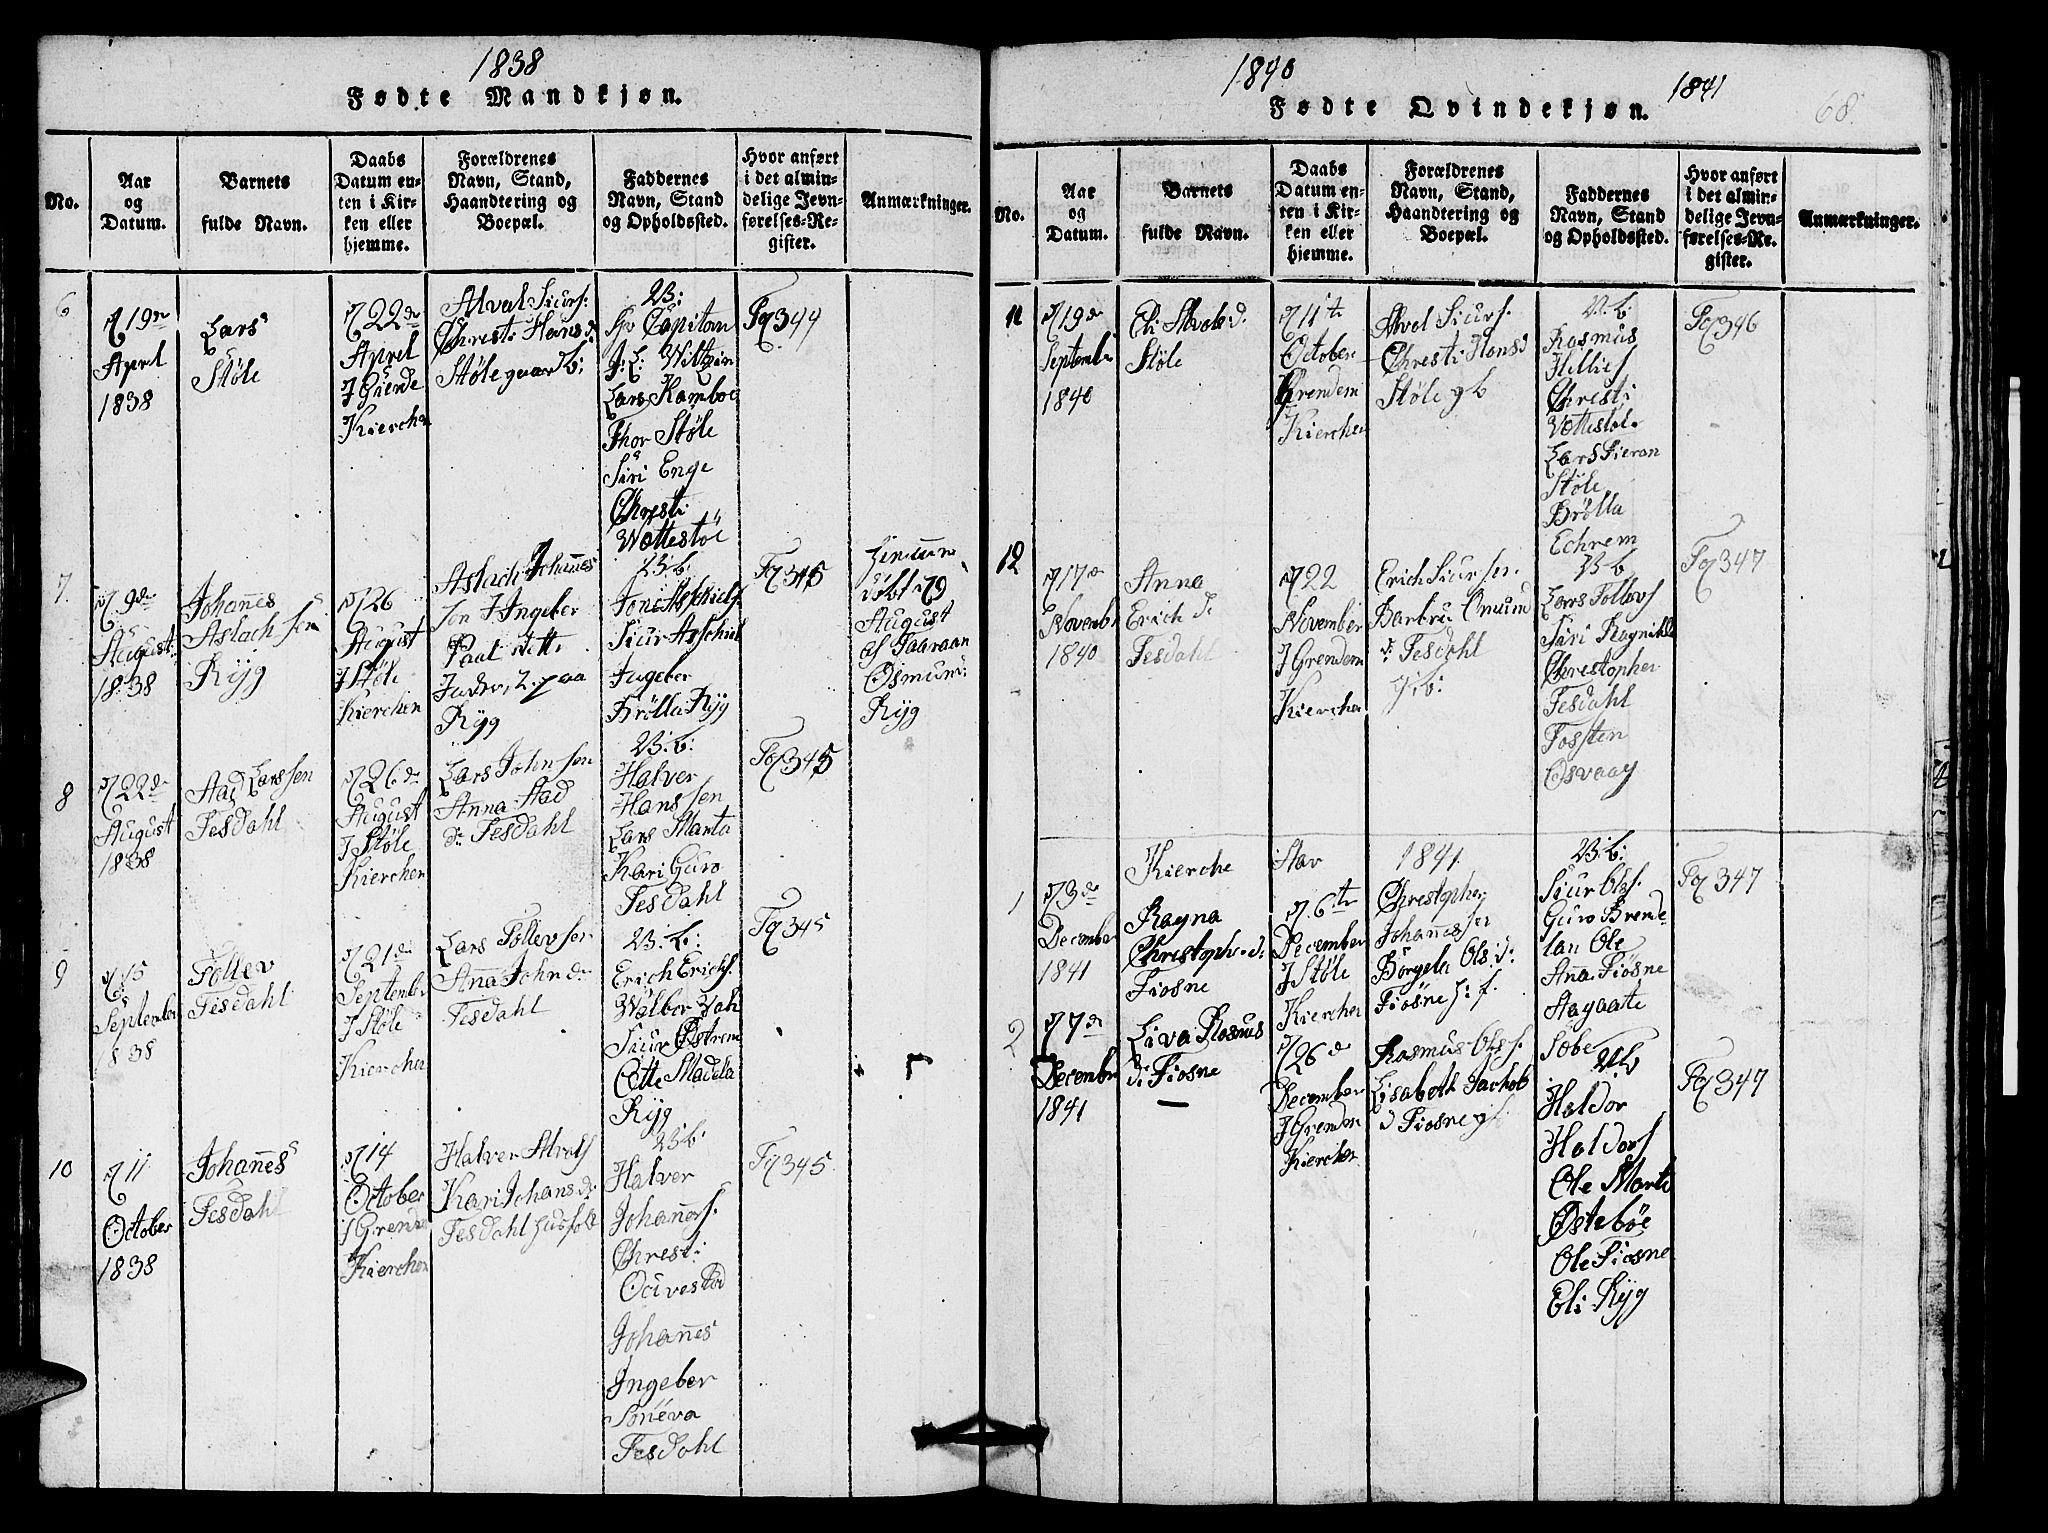 1838
Fødte Mandkjøn.
No.
Aar
og
Datum.
Barnets
fulde Navn.
Daabs
Datum en-
ten i Kir-
ken eller
hjemme.
Forældrenes
Navn, Stand,
Haandtering og
Boepæl.
Faddernes
Navn, Stand
og Opholdssted.
Hvor anført
i det almin-
delige Jevn-
førelses-Re-
gister.
Anmærkninger.
6
19de
April
1838
Lars
Støle
22de
Aprel
J Gierde
Kierchen
Alvel Siurs.
Christi Hansd.
Støle gaardb:
B:
Capitan
J: L: Wiltzin
Lars Kamboe
Thor Støle
Siri Enge
Christi
Wottestøl
344
7.
9de
August
1838
Johannes
Aslach sen
Ryg
26
August
J Støle
Kierchen
Aslach Johannes
sen J Ingeber
Paal datter
paa
Ryg
B: b:
Siur Asschiels
Ingeber
Brølla Ryg
345
døbt 19
August
af
Osmund
Ryg
8
22de
August
1838
Aad Larssen
Fesdahl
26de
August
J Støle
Kierchen
Lars John sen
Anna Aad
d: Fesdahl
B: b:
Halver
Hanssen
Lars Marta
Kari Guro
Fesdahl
345
9
15
September
1838
Tollev
Fesdahl
21de
September
J Støle
Kierchen
Lars Tollevsen
Anna John d:
Fesdahl
B: b:
Erich Erichs.
Wølber
Siur Østrem
Otte Madela
Ryg
345
10
11
October
1838
Johannes
Fesdahl
14
October
J Grenden
Kierchen
Halver Alvals
Kari Johans d:
Fesdahl husfolk
B b:
Halver
Johannes.
Christi
Johannes
Ingeber
Søneva
Fesdahl
345
1840
1841
Fødte Qvindekjøn.
68.
No.
Aar
og
Datum.
Barnets
fulde Navn.
Daabs
Datum en-
ten i Kir-
ken eller
hjemme.
Forældrenes
Navn, Stand,
Haandtering og
Boepæl.
Faddernes
Navn, Stand
og Opholdssted.
Hvor anført
i det almin-
delige Jevn-
førelses-Re-
gister.
Anmærkninger.
11
19de
September
1840
Eli Alvals d.
Støle
11te
October
Grenden
Kierchen
Alvel Siurs.
Christi Hansd
Støle g b
B. b:
Rasmus
Christi
Vottestøl
Lars
Støle
Brølla
Echrem
346
12
17de
November
1840
Anna
Erich d:
Fesdahl
22
November
J Grenden
Kierchen
Erich Siursen.
Barbru
d: Fesdahl
g: b:
B b
Lars Tollevs
Siri Ragnilda
Christopher
Fesdahl
Tossten
Osvaag
347
Kierche Aar 1841
1
3de
December
1841
Ragna
Christophe d:
Fiosne
6te
December
J Støle
Kierchen
Christopher
Johannessen
Børgela Ols. d:
Fiosne h: f.
B: b:
Siur Ols.
Guro Brende
lan Ole
Anna Fiosne
Aagaate
Søbe
347
2
7de
December
1841
Liva Rasmus
d: Fiosne
26de
December
J Grenden
Kierchen
Rasmus Ols.
Lisabeth Jachob
d Fiosne gb
B b
Haldor
Haldors
Ole Marti
Østebøe
Ole Fiosne
Eli Ryg
347